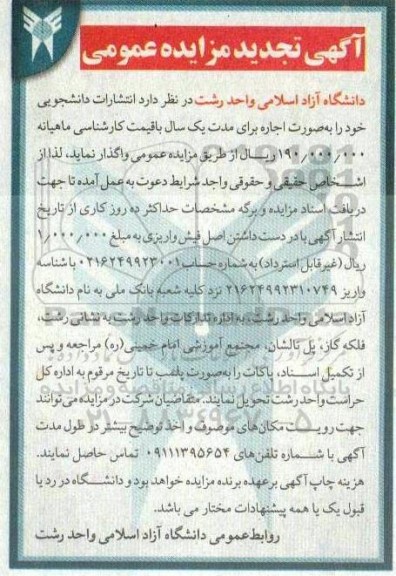 آگهی تجدید مزایده عمومی
دانشگاه آزاد اسلامی واحد رشت در نظر دارد انتشارات دانشجویی
خود را به‌صورت اجاره برای مدت یک سال باقیمت کارشناسی ماهیانه
۱۹۰/۰۰۰/۰۰۰ ریـــال از طریق مزایده عمومی واگذار نماید، لذا از
اشـخاص حقیقی و حقوقی واجد شرایط دعوت به عمل آمده تا جهت
دریافت اسناد مزایده و برگه مشخصات حداکثر ده روز کاری از تاریخ
انتشار آگهی با در دست داشتن اصل فیش واریزی به مبلغ ۱/۰۰۰/۰۰۰
ریال (غیرقابل استرداد) به شماره حساب ۰۲۱۶۲۴۹۹۲۳۰۰۱ با شناسه
واریز ۲۱۶۲۴۹۹۲۳۱۰۷۴۹ نزد کلیه شعبه بانک ملی به نام دانشگاه
آزاد اسلامی واحد رشت، به اداره تدارکات واحد رشت به نشانی رشت،
فلکه گاز، پل تالشان، مجتمع آموزشی امام خمینی(ره) مراجعه و پس
از تکمیل اسـناد، پاکات را به‌صورت پلمب تا تاریخ مرقوم به اداره کل
حراست واحد رشت تحویل نمایند. متقاضیان شرکت در مزایده می‌توانند
جهت رویـــت مکان‌های موصوف و اخذ توضیح بیشتر در طول مدت
آگهی با شـــماره تلفن‌های ۰۹۱۱۱۳۹۵۶۵۴ تماس حاصل نمایند.
هزینه چاپ آگهی بر عهده برنده مزایده خواهد بود و دانشـــگاه در رد یا
قبول یک یا همه پیشنهادات مختار می باشد.
روابط عمومی دانشگاه آزاد اسلامی واحد رشت